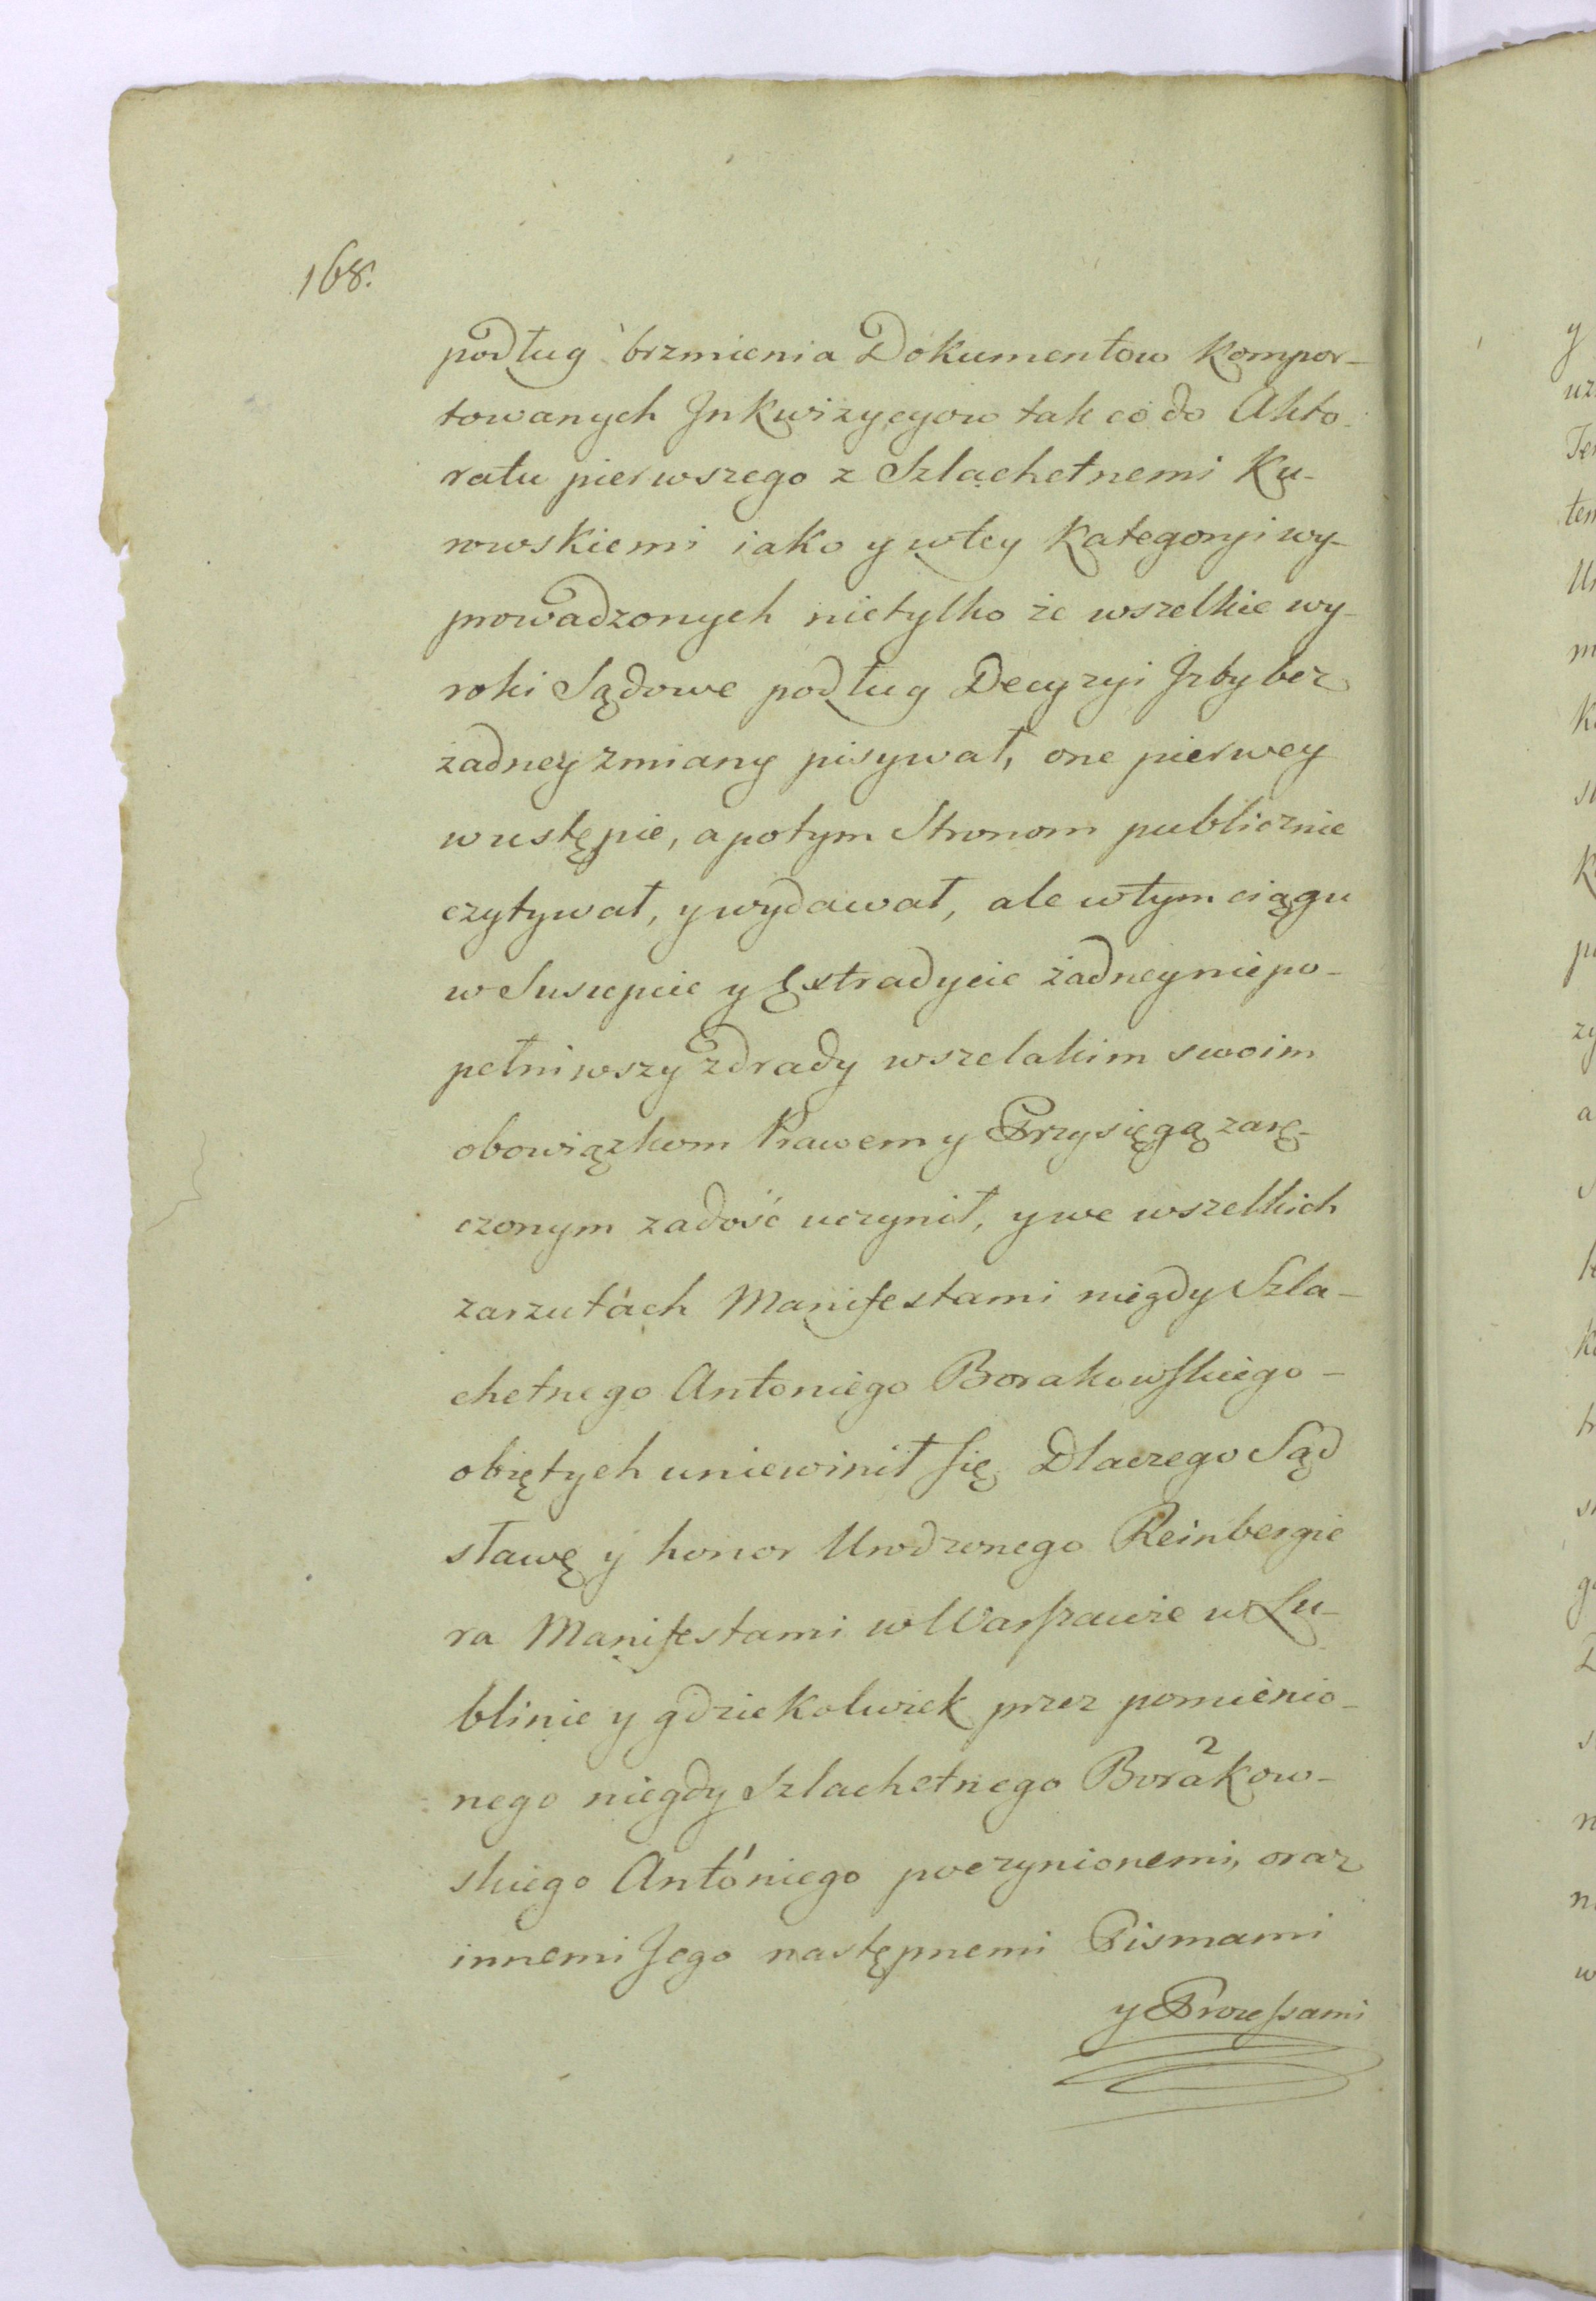 168.
podług brzmienia Dokumentow kompor-
towanych Jnkwizycyow tak co do Akto-
ratu pierwszego z Szlachetnemi Ku-
rowskiemi iako y wtey Kategoryi wy-
prowadzonych nietylko że wszelkie wy-
roki Sądowe podług Decyzyi Jzby bez
żadney zmiany pisywał, one pierwey
w ustępie, a potym Stronom publicznie
czytywał, y wydawał, ale wtym ciągu
w Suscepcie y Extradycie żadney niepo-
pełniwszy zdrady wszelakim swoim
obowiązkom Prawem y Przysięgą zarę-
czonym zadość uczynił, y we wszelkich
zarzutach Manifestami niegdy Szla-
chetnego Antoniego Borakowskiego -
obiętych uniewinił się Dlaczego Sąd
sławę y honor Urodzonego Reinbergie
ra Manifestami w Warszawie w Lu-
blinie y gdziekolwiek przez pomienio-
nego niegdy Szlachetnego Borakow-
skiego Antoniego poczynionemi, oraz
innemi Jego następnemi Pismami
y Processami